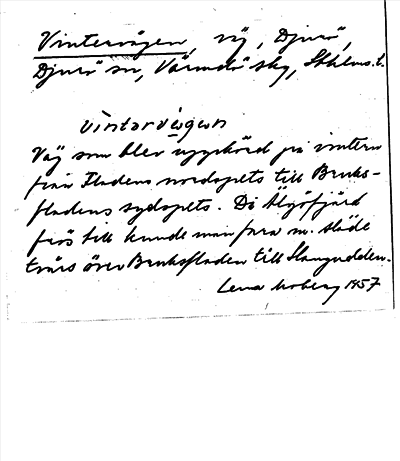 Vintervägen, väg, Djurö,
Djurö sn, Värmdö skg, Sthlms l.
vìntərvä̀gən
Väg som blev uppkörd på vintern
från Fladens nordspets till Bruks-
fladens sydspets. Då Älgöfjärd
frös till kunde man fara m. släde
tvärs över Bruksfladen till Stangudden.
Lena Moberg 1957